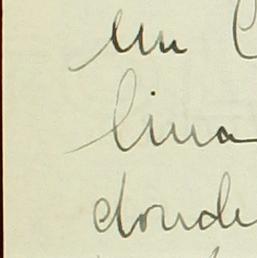 un C
lina
donde